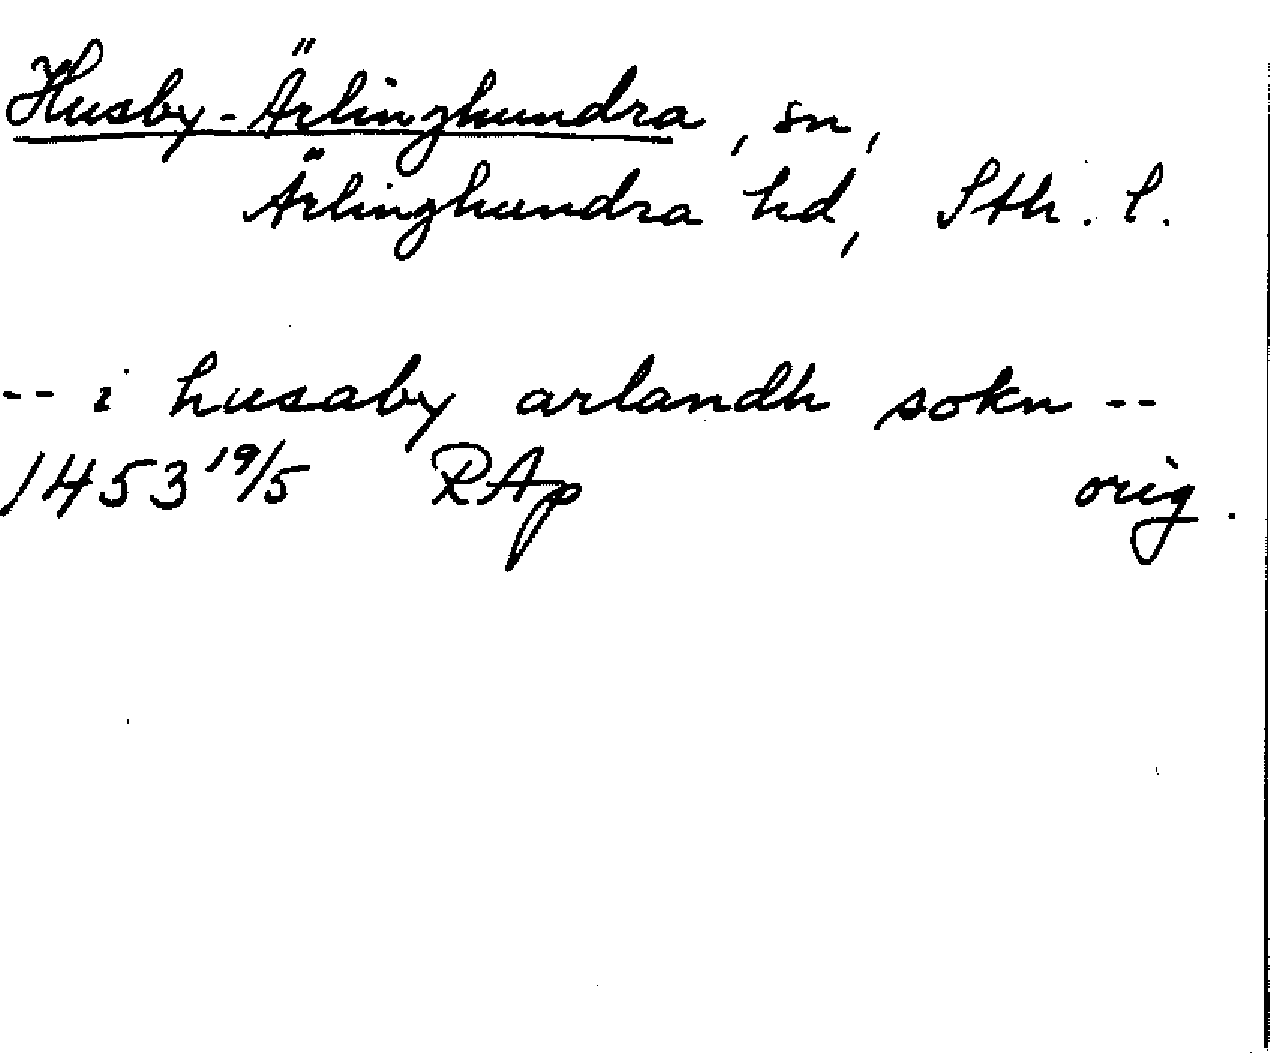 Husby-Ärlinghundra, sn,
Ärlinghundra hd, Sth. l.
-- i husaby arlandh sokn --
1453 19/5 RAp orig.